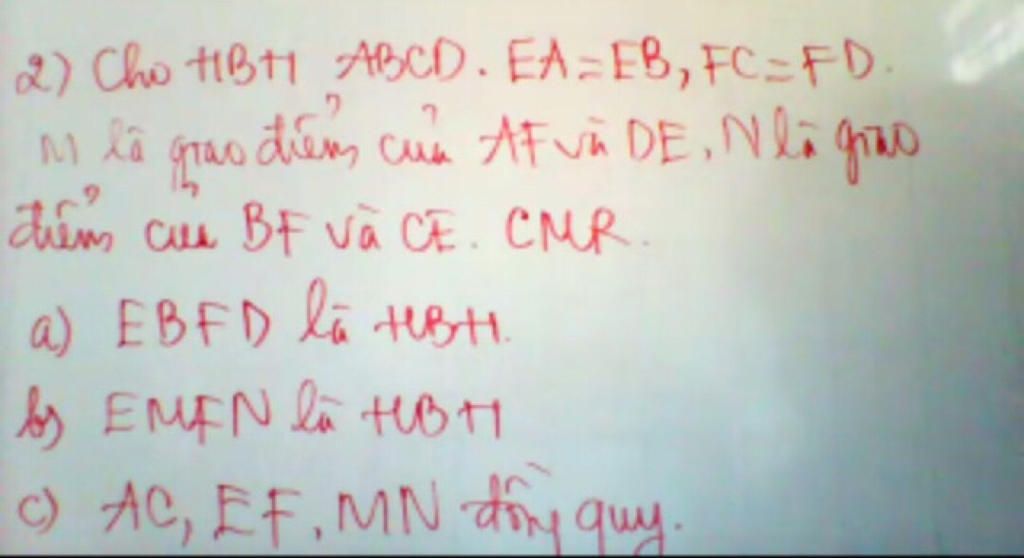 2) Cho HBH ABCD. EA=EB, FC=FD.
M là giao điểm của AF và DE, N là giao
điểm của BF và CE. CMR.
a) EBFD là HBH.
b) EMFN là HBH
c) AC, EF, MN đồng quy.